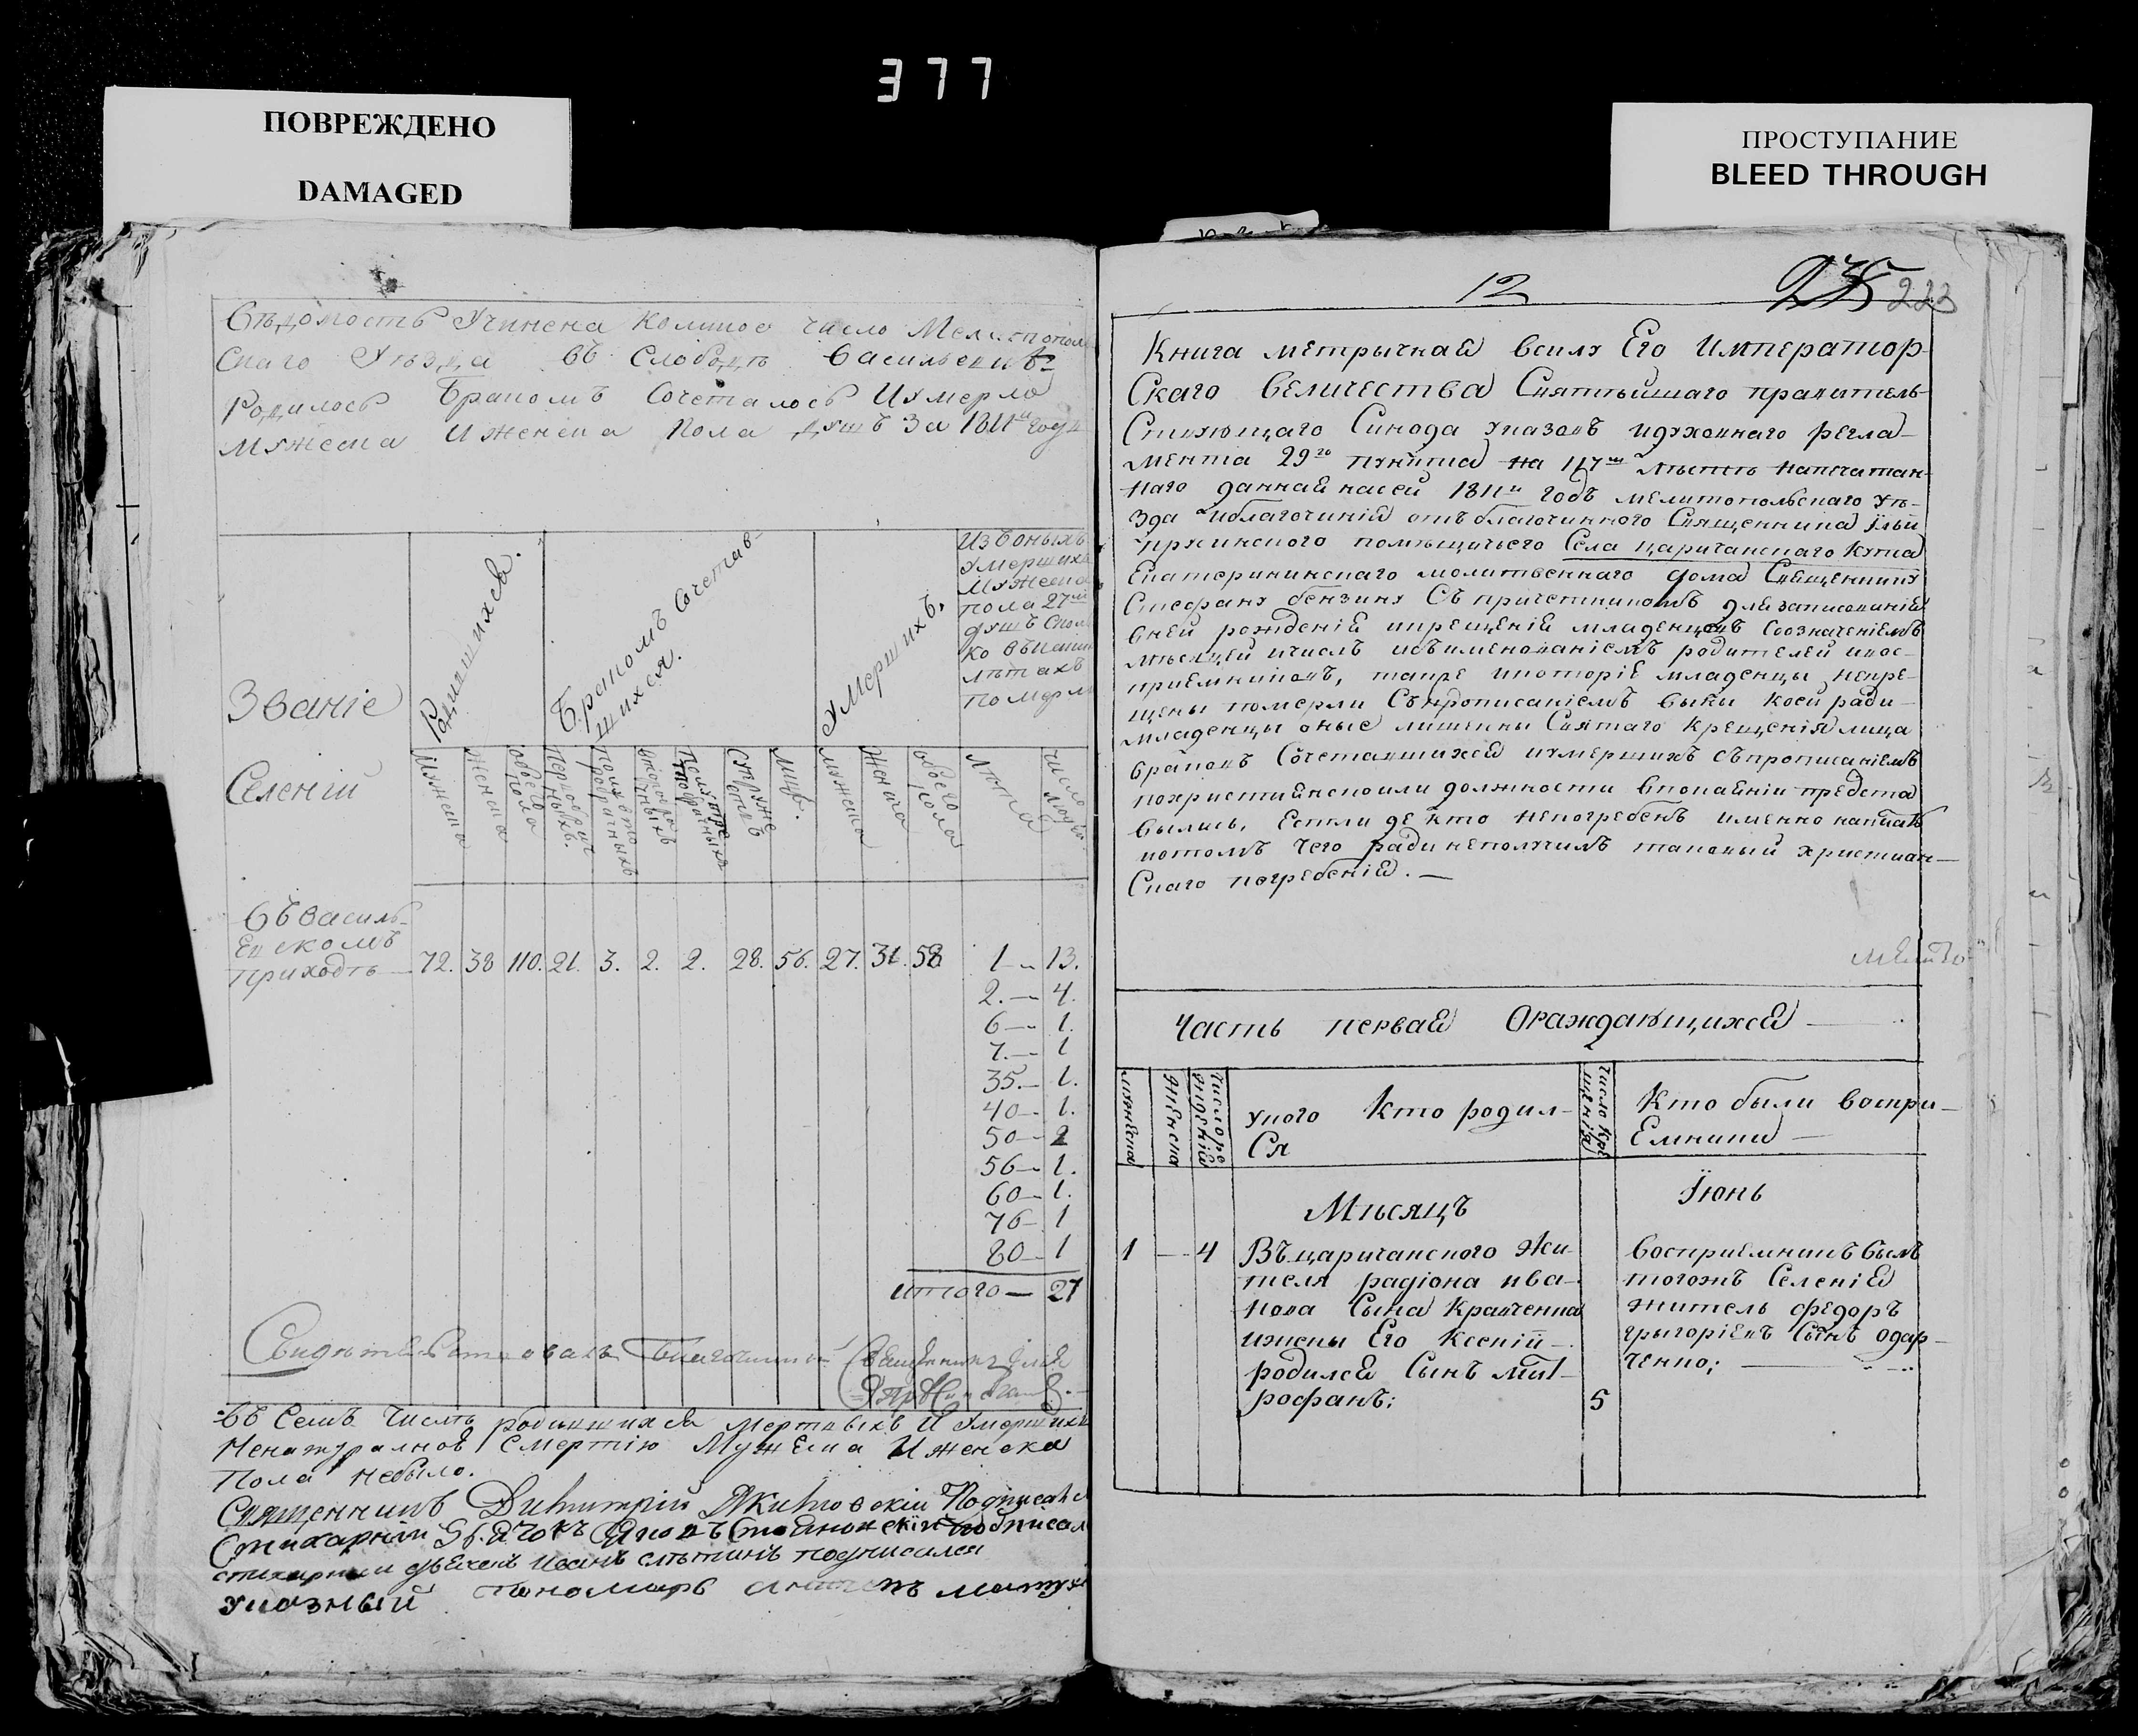 377
ПОВРЕЖДЕНО
DAMAGED
ПРОСТУПАНИЕ
BLEED THROUGH
Вѣдомость Учинена Коликое число Мелитополь
скаго Уѣзда въ Слободѣ Васильевкѣ
Родилось Бракомъ Сочеталось И умерло
мужеска И женска Пола душъ За 1811й годъ
Званіе
Селеній
Родившихся.
Бракомъ Сочетав-
шихся.
Умершихъ,
Изъ оныхъ
умершихъ
мужеска
пола 27ми
душъ Сколь
ко въ какихъ
лѣтахъ
померло
Мужеска
Женска
обоего пола
Первобрачныхъ.
Полувторобрачныхъ
второбрачныхъ
Полутретобрачныхъ
Супружествъ
лицъ.
мужеска
Женска
обоего пола
лѣта
число людей
Въ Василь-
евскомъ
приходѣ — 72. 38 110. 21. 3. 2. 2. 28. 56. 27. 31. 58 1 — 13.
2. — 4.
6 — 1.
7. — 1
35. — 1.
40 — 1.
50 — 2
56 — 1.
60 — 1.
76 — 1
80 — 1
итого — 27
Свидѣтельствовалъ Благочинный Священникъ Илія
Въ Семъ Числѣ родившихся мертвыхъ И Умершихъ
Ненатуралною Смертію Мужеска И женска
Пола небыло.
Священникъ Димитрій Подписался
Стихарній Дьячокъ подписал
стихарный дьячокъ Иванъ подписался
указный Пономарь
12
223
Книга метрычная всилу Его Император-
Скаго Величества Святѣйшаго правитель-
Ствующаго Синода указовъ идуховнаго регла-
мента 29го пункта на 117м листѣ напечатан-
наго данная насей 1811й годъ мелитопольскаго уѣ-
зда иблагочинія отъ благочинного Священника Ильи
пукинского помѣщичьего Села царичанскаго Кута
Екатерининскаго молитвеннаго дома Священнику
Стефану бензину Съ причетникомъ для записованія
вней рожденій икрещеній младенцовъ Соозначеніемъ
мѣсяцей ичислъ исъименованіемъ родителей ивос-
приемниковъ, такре икоторіе младенцы некре-
щены померли Съпрописаніемъ выны коей ради-
младенцы оные лишенны Святаго Крещенія лица
браковъ Сочетавшихся иумершихъ съпрописаніемъ
похристиянскоили должности впокаяніи предста
вылись, Естли де кто непогребенъ именно написать
потомъ чего ради неполучилъ таковый христиан-
Скаго погребенія. —
Часть первая Ораждающихся —
мужеска
женска
число рожденія
Укого Кто родил-
ся
число крещенія
Кто были воспри-
Емники —
Мѣсяцъ
Іюнь
1 — 4 Въцаричанского жи-
теля радіона ива-
нова Сына Кравченка
ижены Его Ксеній —
родился Сынъ мит-
рофанъ; 5
Восприемникъ былъ
тогожъ Селенія
житель федоръ
григоріевъ Сынъ одар-
ченко; —